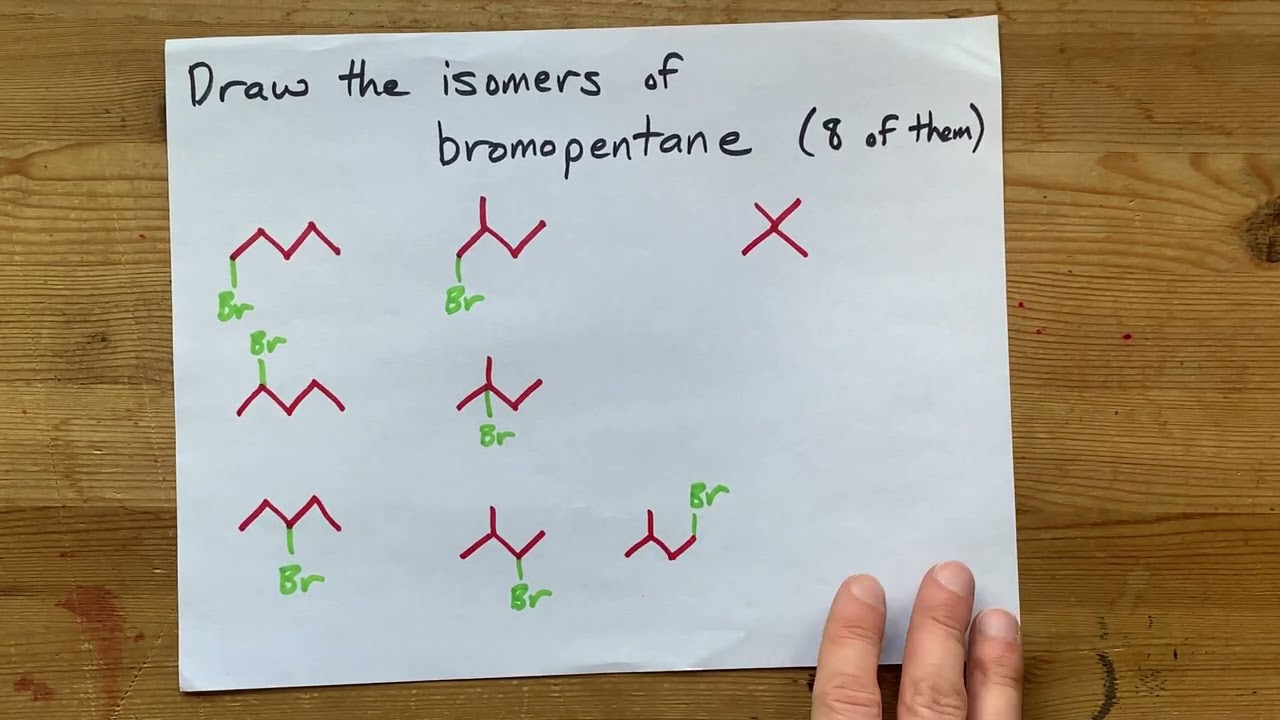 Draw the isomers of
bromopentane (8 of them)
Br
Br
Br
Br
Br
Br
Br